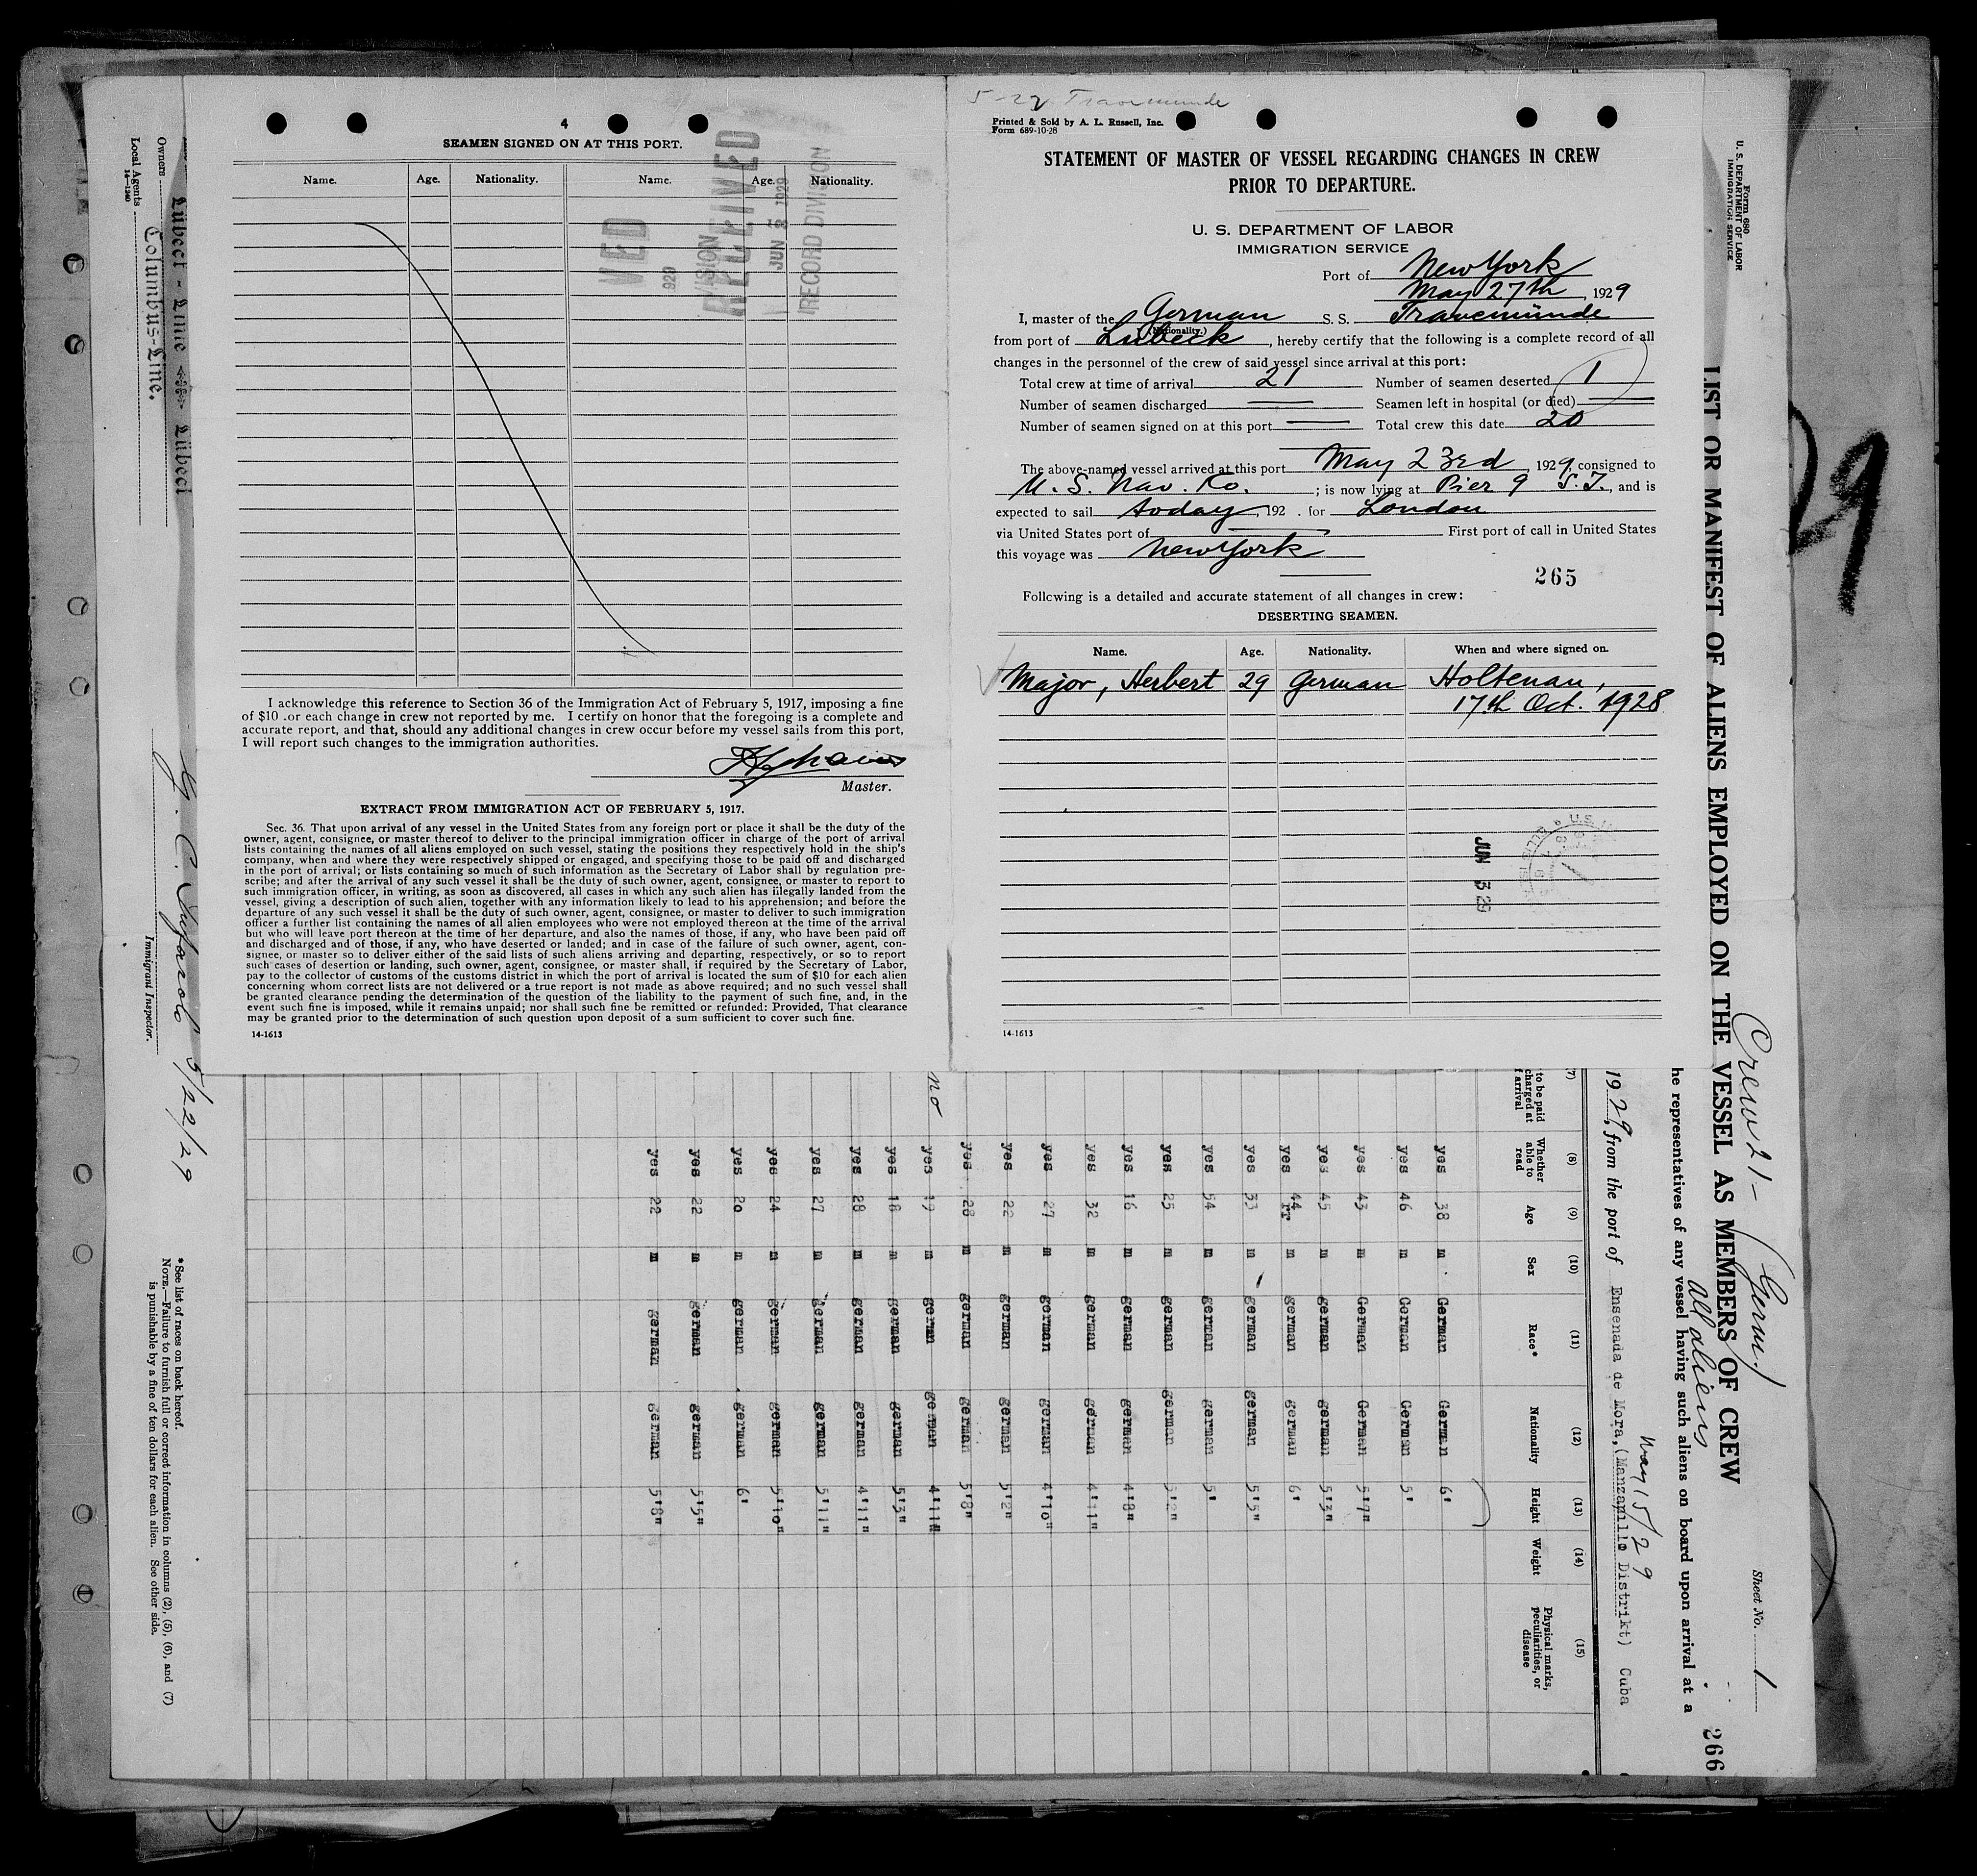 4
SEAMEN SIGNED ON AT THIS PORT.
Name. Age. Nationality. Name. Age. Nationality.
RECEIVED
JUN 3 1929
RECORD DIVISION
I acknowledge this reference to Section 36 of the Immigration Act of February 5, 1917, imposing a fine
of $10 .or each change in crew not reported by me. I certify on honor that the foregoing is a complete and
accurate report, and that, should any additional changes in crew occur before my vessel sails from this port,
I will report such changes to the immigration authorities.
Master.
EXTRACT FROM IMMIGRATION ACT OF FEBRUARY 5, 1917.
Sec. 36. That upon arrival of any vessel in the United States from any foreign port or place it shall be the duty of the
owner, agent, consignee, or master thereof to deliver to the principal immigration officer in charge of the port of arrival
lists containing the names of all aliens employed on such vessel, stating the positions they respectively hold in the ship's
company, when and where they were respectively shipped or engaged, and specifying those to be paid off and discharged
in the port of arrival; or lists containing so much of such information as the Secretary of Labor shall by regulation pre-
scribe; and after the arrival of any such vessel it shall be the duty of such owner, agent, consignee, or master to report to
such immigration officer, in writing, as soon as discovered, all cases in which any such alien has illegally landed from the
vessel, giving a description of such alien, together with any information likely to lead to his apprehension; and before the
departure of any such vessel it shall be the duty of such owner, agent, consignee, or master to deliver to such immigration
officer a further list containing the names of all alien employees who were not employed thereon at the time of the arrival
but who will leave port thereon at the time of her departure, and also the names of those, if any, who have been paid off
and discharged and of those, if any, who have deserted or landed; and in case of the failure of such owner, agent, con-
signee, or master so to deliver either of the said lists of such aliens arriving and departing, respectively, or so to report
such cases of desertion or landing, such owner, agent, consignee, or master shall, if required by the Secretary of Labor,
pay to the collector of customs of the customs district in which the port of arrival is located the sum of $10 for each alien
concerning whom correct lists are not delivered or a true report is not made as above required; and no such vessel shall
be granted clearance pending the determination of the question of the liability to the payment of such fine, and, in the
event such fine is imposed, while it remains unpaid; nor shall such fine be remitted or refunded: Provided, That clearance
may be granted prior to the determination of such question upon deposit of a sum sufficient to cover such fine.
14-1613
5-27 Travemunde
Printed & Sold by A. L. Russell, Inc.
Form 689-10-28
STATEMENT OF MASTER OF VESSEL REGARDING CHANGES IN CREW
PRIOR TO DEPARTURE.
U. S. DEPARTMENT OF LABOR
IMMIGRATION SERVICE
Port of New York
May 27th, 1929
I, master of the German S. S. Travemünde
(Nationality.)
from port of Lübeck, hereby certify that the following is a complete record of all
changes in the personnel of the crew of said vessel since arrival at this port:
Total crew at time of arrival 21 Number of seamen deserted 1
Number of seamen discharged — Seamen left in hospital (or died) —
Number of seamen signed on at this port — Total crew this date 20
The above-named vessel arrived at this port May 23rd, 1929, consigned to
U. S. Nav. Co. ; is now lying at Pier 9 S. I., and is
expected to sail today, 192 . for London
via United States port of — First port of call in United States
this voyage was New York
265
Following is a detailed and accurate statement of all changes in crew:
DESERTING SEAMEN.
Name. Age. Nationality. When and where signed on.
Major, Herbert 29 German Holtenau,
17th Oct. 1928
JUN 3 29
14-1613
29
Form 680
U. S. DEPARTMENT OF LABOR
IMMIGRATION SERVICE
Crew 21- (Germ.)
Sheet No. 1
LIST OR MANIFEST OF ALIENS EMPLOYED ON THE VESSEL AS MEMBERS OF CREW
266
All aliens
he representatives of any vessel having such aliens on board upon arrival at a
May 15/29
1929, from the port of Ensenada de Mora,(Manzanillo Distrikt) Cuba
(7) (8) (9) (10) (11) (12) (13) (14) (15)
to be paid
charged at
f arrival
Whether
able to
read
Age Sex Race* Nationality Height Weight
Physical marks,
peculiarities, or
disease
yes 38 m German German 6'
yes 46 m German German 5'
yes 43 m German German 5'7"
yes 45 m german german 5'3"
yes 44 m german german 6'
yes 33 m german german 5'5"
yes 54 m german german 5'
yes 25 m german german 5'2"
yes 16 m german german 4'8"
yes 32 m german german 4'11"
yes 27 m german german 4'10"
yes 22 m german german 5'2"
yes 28 m german german 5'8"
no yes 19 m germn german 4'11"
yes 18 m german german 5'3"
yes 28 m german german 4'11"
yes 27 m german german 5'11"
yes 24 m german german 5'10"
yes 20 m german german 6'
yes 22 m german german 5'5"
yes 22 m german german 5'8"
Lübeck - Linie Lübeck
Owners
Columbus-Line.
Local Agents
14-1240
5/22/29
Immigrant Inspector.
*See list of races on back hereof.
NOTE.—Failure to furnish full or correct information in columns (2), (5), (6), and (7)
is punishable by a fine of ten dollars for each alien. See other side.